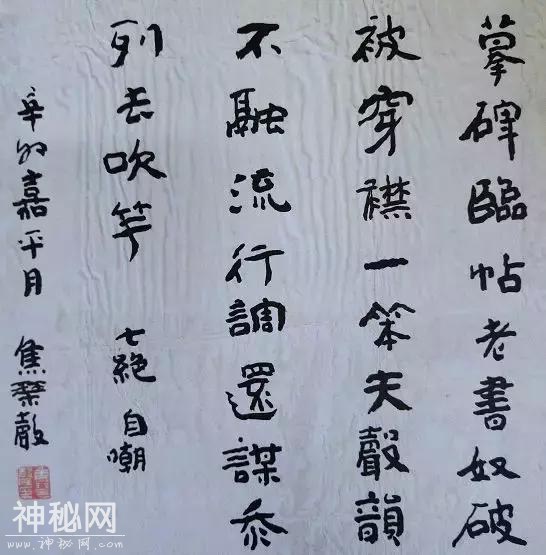 摹碑臨帖老書奴破
被穿襟一笨夫聲韻
不融流行調還謀參
列去吹竽 七絕 自嘲
辛卯嘉平月 焦
神秘网